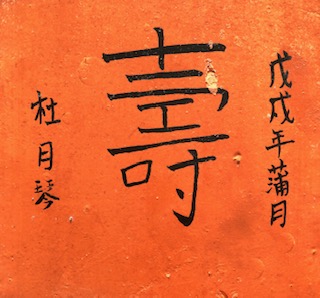 戊戌年蒲月
壽
杜月琴